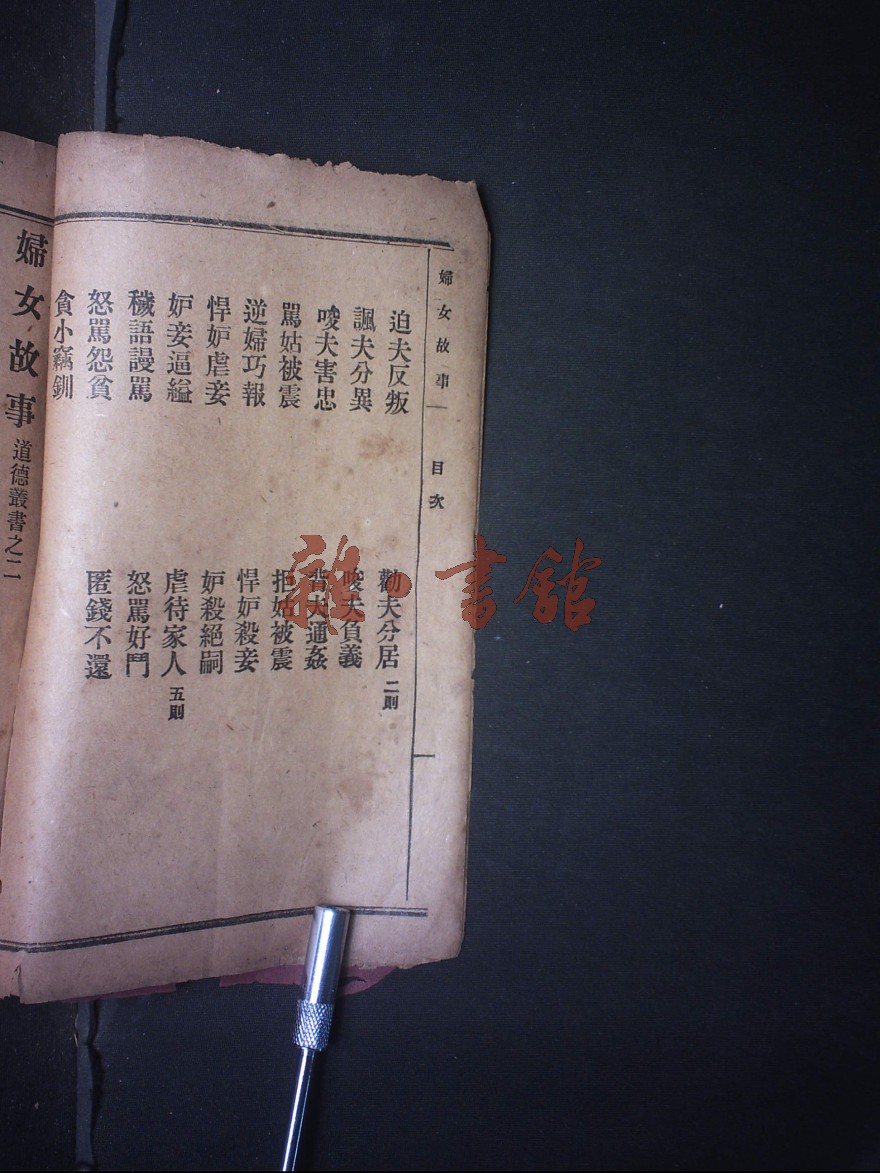 婦女故事 目次
迫夫反叛 勸夫分居 二則
諷夫分異 唆夫負義
唆夫害忠 背夫通姦
罵姑被震 拒姑被震
逆婦巧報 悍妒殺妾
悍妒虐妾 妒殺絕嗣
妒妾逼縊 虐待家人 五則
穢語謾罵 怒罵好鬥
怒罵怨貧 匿錢不還
貪小竊釧
婦女故事 道德叢書之二
雜·書館